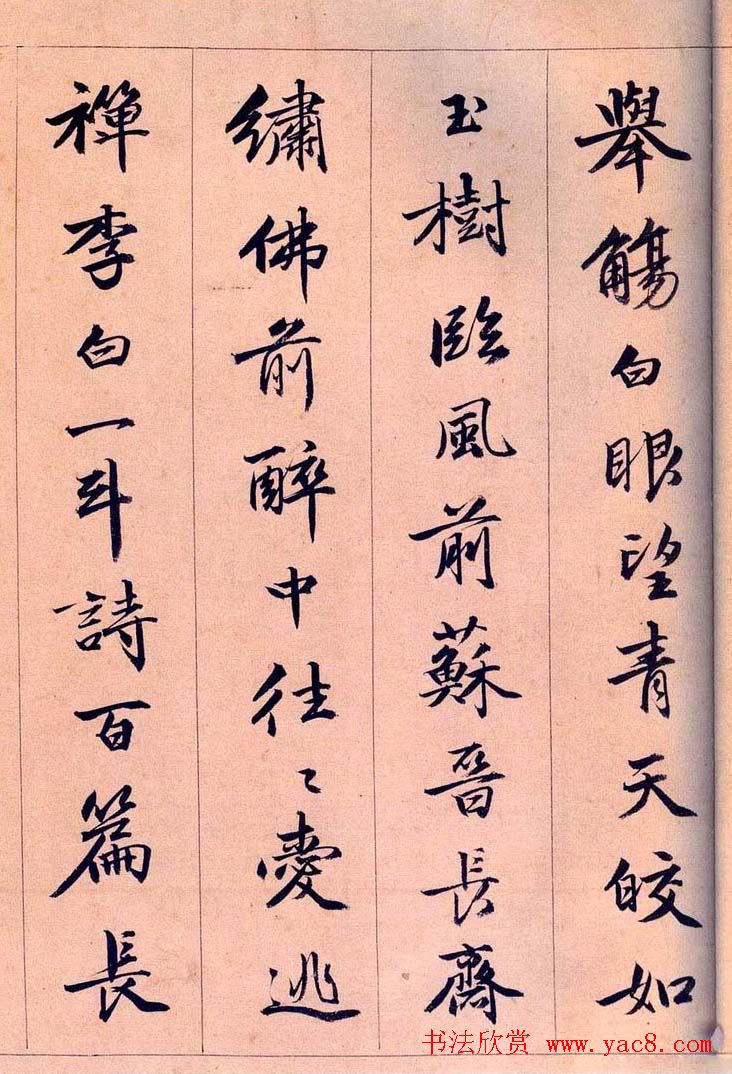 舉觴白眼望青天皎如
玉樹臨風前蘇晉長齋
繡佛前醉中往〻愛逃
禪李白一斗詩百篇長
书法欣赏 www.yac8.com